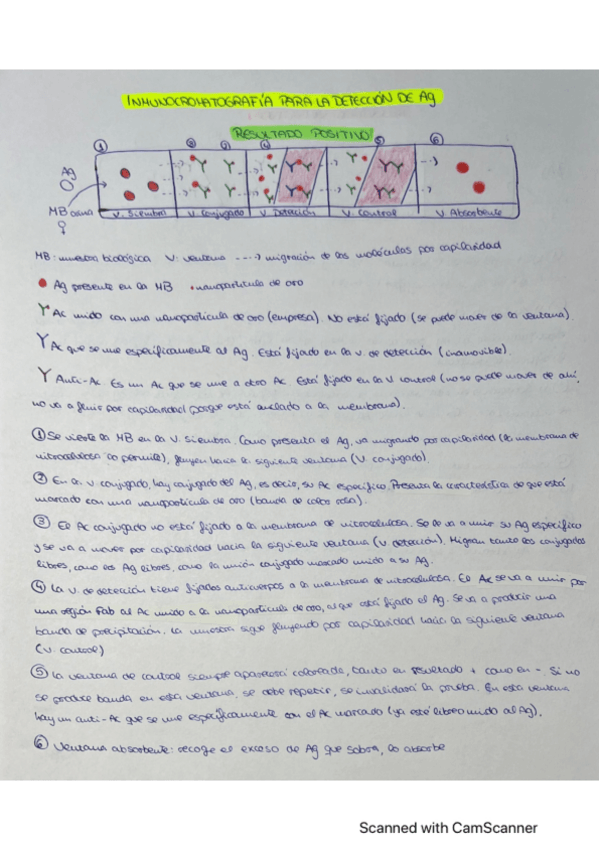 INMUNOCROMATOGRAFÍA PARA LA DETECCIÓN DE Ag
RESULTADO POSITIVO
1 2 3 4 5 6
Ag
MB
V. Siembra V. Conjugado V. Detección V. Control V. Absorbente
MB: muestra biológica V: ventana ----> migración de las moléculas por capilaridad
Ag presente en la MB nanopartícula de oro
Ac unido con una nanopartícula de oro (empresa). No está fijado (se puede mover de la ventana).
Ac que se une específicamente al Ag. Está fijado en la v. de detección (inamovible).
Anti-Ac. Es un Ac que se une a otro Ac. Está fijado en la V control (no se puede mover de ahí,
no va a fluir por capilaridad porque está anclado a la membrana).
① Se vierte la MB en la V. Siembra. Como presenta el Ag, va migrando por capilaridad (la membrana de
nitrocelulosa lo permite), fluyen hacia la siguiente ventana (V. conjugado).
② En la V. conjugado, hay conjugado del Ag, es decir, su Ac específico. Presenta la característica de que está
marcado con una nanopartícula de oro (banda de color rosa).
③ El Ac conjugado no está fijado a la membrana de nitrocelulosa. Se le va a unir su Ag específico
y se va a mover por capilaridad hacia la siguiente ventana (v. detección). Migran tanto los conjugados
libres, como los Ag libres, como la unión conjugado marcado unido a su Ag.
④ La v. de detección tiene fijados anticuerpos a la membrana de nitrocelulosa. El Ac se va a unir por
una región Fab al Ac unido a la nanopartícula de oro, al que está fijado el Ag. Se va a producir una
banda de precipitación. La muestra sigue fluyendo por capilaridad hacia la siguiente ventana
(V. control)
⑤ La ventana de control siempre aparecerá coloreada, tanto en resultado + como en -. Si no
se produce banda en esta ventana, se debe repetir, se invalidará la prueba. En esta ventana
hay un anti-Ac que se une específicamente con el Ac marcado (ya esté libre o unido al Ag).
⑥ Ventana absorbente: recoge el exceso de Ag que sobra, lo absorbe
Scanned with CamScanner